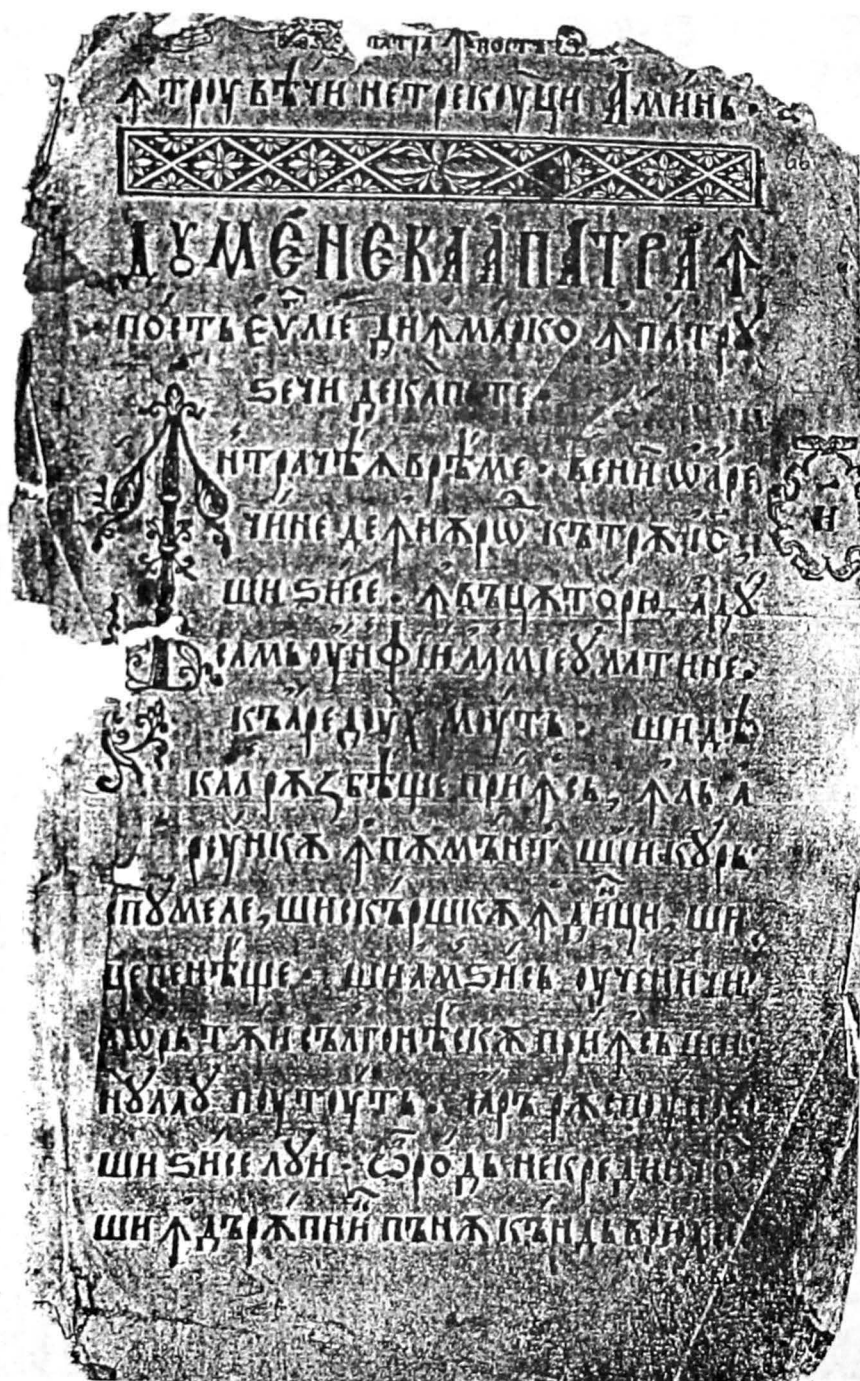 патра ꙟпостъ
ꙟтрꙋ вѣчи нетрекꙋци А҆ми́нь ·
66
ДꙊМЕ́НЕКА А҆ПА́ТРА Ꙟ
по́сть еѵⷢ҇лїе ди ꙟма́рко ꙟпа́трꙋ
ѕечи де ка́пете ·
Ꙟ
н́трачѣꙗ врѣ́ме · вени ѡаре
чи́не де ꙟинѫрѡ кътрѫ їс҃
ши ѕи́се · ꙟвъцѫто́рю, а҆дꙋ
самь ꙋн фїи ал мїеꙋ ла тине ·
къ а́ре дꙋх мꙋть · ши дѣ
кал рѫзбѣще при ꙟсь, ꙟль а
рꙋ́нкѫ ꙟпѫмънт ши накꙋрь
спꙋмеле, ши скъ́ршкѫ ꙟ ди́нци, ши
цепенѣ́ще · ши ам ѕи́сь ꙋчени́чи
лѡрь тѫи съл гонѣ́скѫ при ꙟсь ши
нꙋ лаꙋ пꙋтꙋть · ꙗръ рѫспꙋнсе
ши ѕи́се лꙋи · ѡ҆ ро́дь некредин
ши ꙟдъръ́пни пънѫ къндь